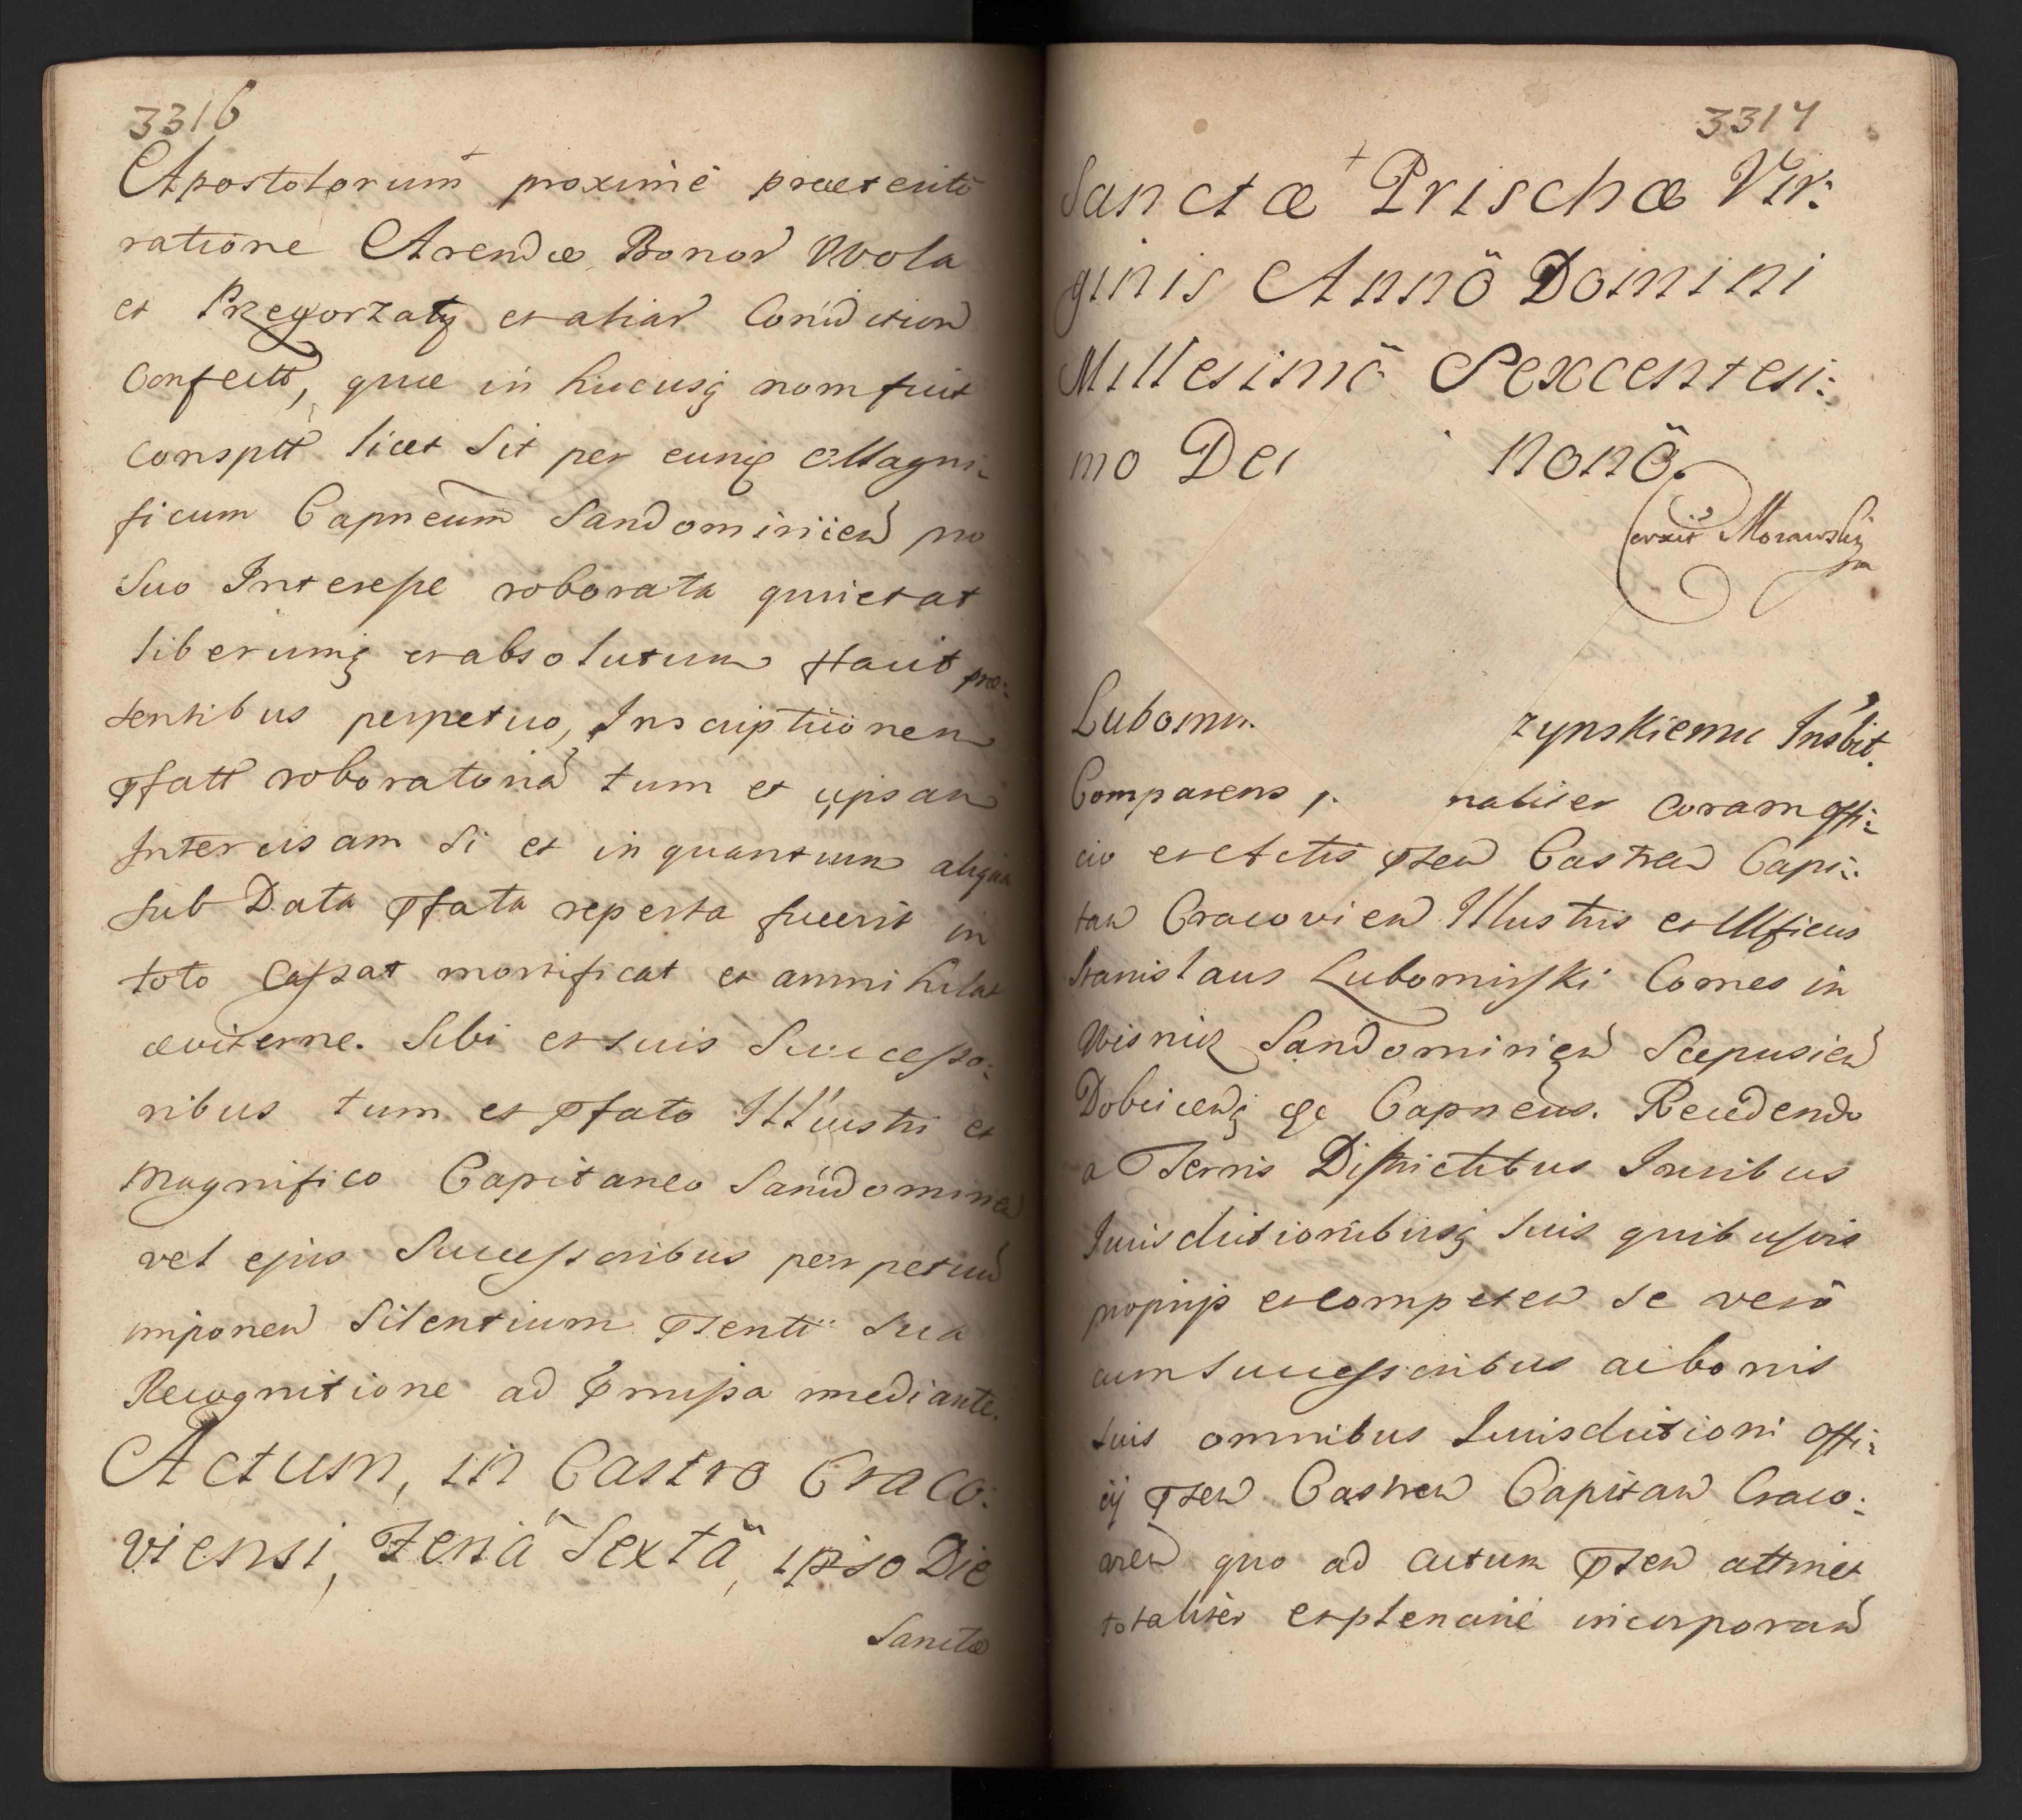 3316
Apostolorum proxime praeterito
ratione Arendae Bonor Wola
et Przegorzaty et aliar Condition
Confectt, quae in hucusq nom fuit
Consptt licet Sit per eunq Magni-
ficum Capneum Sandomirien pro
Suo Interesse roborata quietat
liberumq et absolutum Stauit prae:
sentibus perpetuo, Inscriptionem
Pfatt roboratoria tum et ipsam
Intercisam Si et in quantum aliqua
Sub Data Pfata reperta fuerit in
toto Cassat mortificat et annihilat
aeviterne. Sibi et suis Successo:
ribus tum et Pfato Illustri et
Magnifico Capitaneo Sandomirien
vel ejus Successoribus perpetuu
imponen Silentium Psentt Sua
Recognitione ad Pmissa mediante.
Actum, in Castro Craco:
viensi, Feriâ Sextâ, ipso Die
Sanctae
3317
Sanctae Prischae Vir:
ginis Annô Domini
Millesimô Sexcentesi:
mo De nonô.
Coraxit Morawski
Lubomi zynskiemu Inscbit.
Comparens p naliter coram offi:
cio et Actis Psen Castren Capi:
tan Cracovien Illustris et Mficus
Stanislaus Lubomirski Comes in
Wisnicz Sandomirien Scepusien
Dobcicenq &c Capneus. Recedendo
a Terris Districtibus Iuribus
Iurisdictionibusq suis quibusvis
proprijs et competen se verô
cum Successoribus ac bonis
suis omnibus Iurisdictioni offi:
cij Psen Castren Capitan Craco:
vien quo ad actum Psen attinet
totaliter et plenarie incorporan